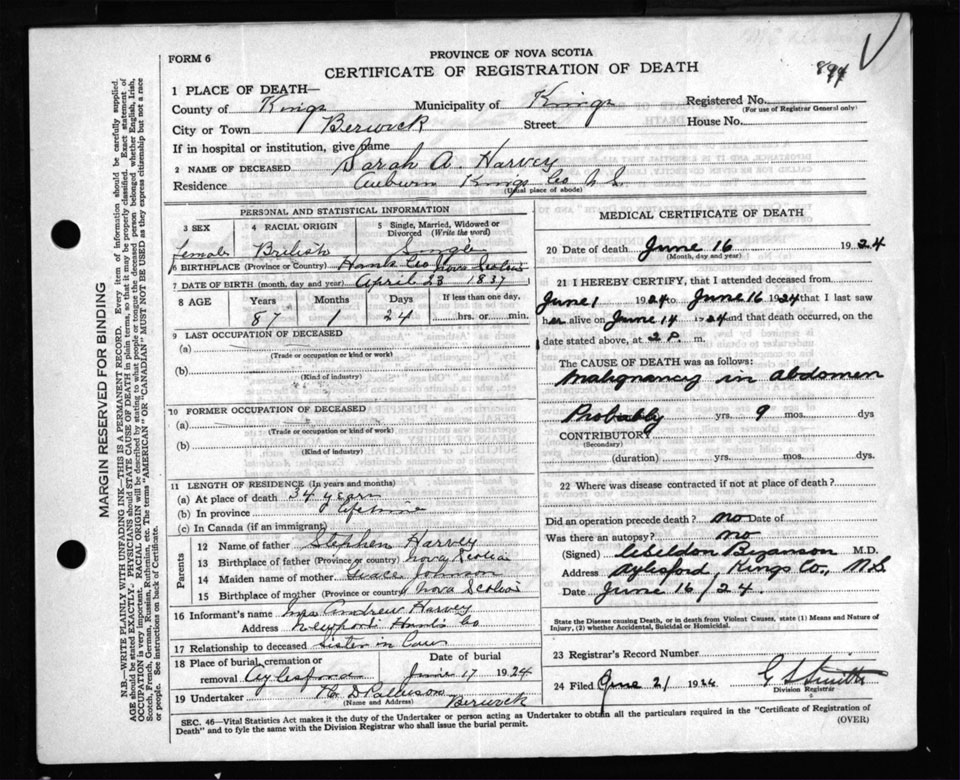 894
FORM 6
PROVINCE OF NOVA SCOTIA
CERTIFICATE OF REGISTRATION OF DEATH
1 PLACE OF DEATH—
County of Kings Municipality of Kings Registered No.
(For use of Registrar General only)
City or Town Berwick Street House No.
If in hospital or institution, give name
2 NAME OF DECEASED Sarah A. Harvey
Residence Auburn Kings Co N.S.
(Usual place of abode)
PERSONAL AND STATISTICAL INFORMATION
3 SEX 4 RACIAL ORIGIN 5 Single, Married, Widowed or Divorced (Write the word)
female British Single
6 BIRTHPLACE (Province or Country) Hants Co Nova Scotia
7 DATE OF BIRTH (month, day and year) April 23 1837
8 AGE Years Months Days If less than one day,
87 1 24 hrs. or min.
9 LAST OCCUPATION OF DECEASED
(a)
(Trade or occupation or kind or work)
(b)
(Kind of industry)
10 FORMER OCCUPATION OF DECEASED
(a)
(Trade or occupation or kind or work)
(b)
(Kind of industry)
11 LENGTH OF RESIDENCE (In years and months)
(a) At place of death 34 years
(b) In province Lifetime
(c) In Canada (if an immigrant)
Parents
12 Name of father Stephen Harvey
13 Birthplace of father (Province or country) Nova Scotia
14 Maiden name of mother Grace Johnson
15 Birthplace of mother (Province or country) Nova Scotia
16 Informant's name Mrs Andrew Harvey
Address Newport Hants Co
17 Relationship to deceased Sister in Law
18 Place of burial, cremation or removal Aylesford Date of burial June 17 1924
19 Undertaker Berwick
(Name and Address)
MEDICAL CERTIFICATE OF DEATH
20 Date of death June 16 1924
(Month, day and year)
21 I HEREBY CERTIFY, that I attended deceased from
June 1 1924 to June 16 1924 that I last saw
her alive on June 14 1924 and that death occurred, on
date stated above, at 2 P. m.
The CAUSE OF DEATH was as follows:
Malignancy in abdomen
Probably yrs. 9 mos. dys
CONTRIBUTORY
(Secondary)
(duration) yrs. mos. dys.
22 Where was disease contracted if not at place of death?
Did an operation precede death? no Date of
Was there an autopsy? no
(Signed) Bezanson M.D.
Address Aylesford, Kings Co., N.S
Date June 16/24.
State the Disease causing Death, or in death from Violent Causes, state (1) Means and Nature of
Injury, (2) whether Accidental, Suicidal or Homicidal.
23 Records Record Number
24 Filed June 21 1924 Smith
Division Registrar
SEC. 46—Vital Statistics Act makes it the duty of the Undertaker or person acting as Undertaker to obtain all the particulars required in the "Certificate of Registration of
Death" and to fyle the same with the Division Registrar who shall issue the burial permit. (OVER)
MARGIN RESERVED FOR BINDING
N.B.—WRITE PLAINLY WITH UNFADING INK—THIS IS A PERMANENT RECORD. Every item of information should be carefully supplied.
AGE should be stated EXACTLY. PHYSICIANS should STATE CAUSE OF DEATH in plain terms, so that it may be properly classified. Exact statement of
OCCUPATION is very important. RACIAL ORIGIN will be described by stating to what people or tongue the deceased person belonged whether English, Irish,
Scotch, French, German, Russian, Ruthenian, etc. The terms "AMERICAN" OR "CANADIAN" MUST NOT BE USED as they express citizenship but not a race
or people. See instructions on back of Certificate.